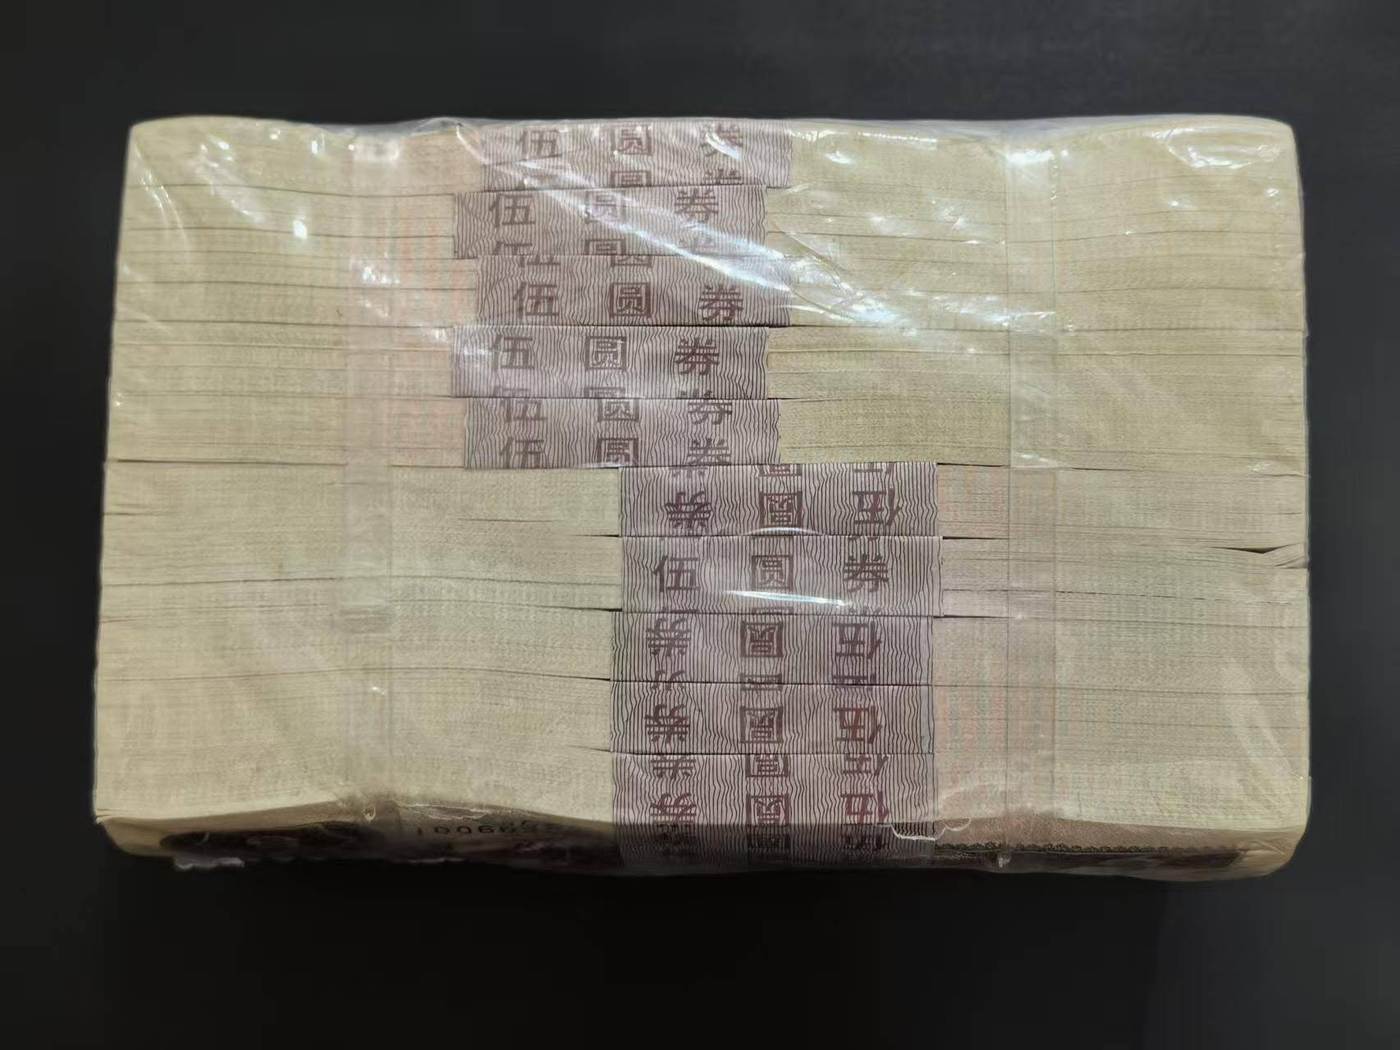 伍 圆 券
圆
伍 圆 券
伍 圆
伍 圆 券
伍 圆 券
伍 圆 券
伍 圆 券
伍 圆 券
伍 圆 券
伍 圆 券
伍 圆 券
伍 圆 券
伍 圆 券